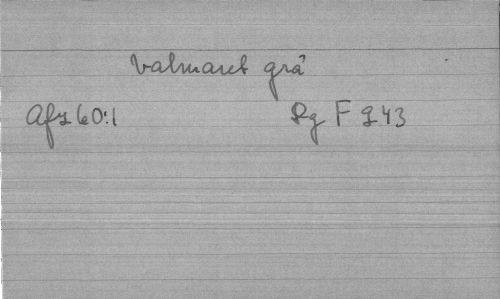 Valmaret grå
Afz 60:1 Rg F 943